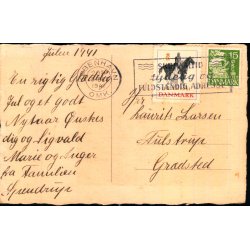 Julen 1941
En rigtig Glædelig
Jul og et godt
Nytaar Ønskes
dig og Sigvald
Marie og Inger
fra Familien
Spendrup
KØBENHAVN
OMK.
SKRIV
tydelig og
FULDSTÆNDIG ADRESSE
DANMARK
15
DANMARK
Hr
Laurits Larsen
Gradsted